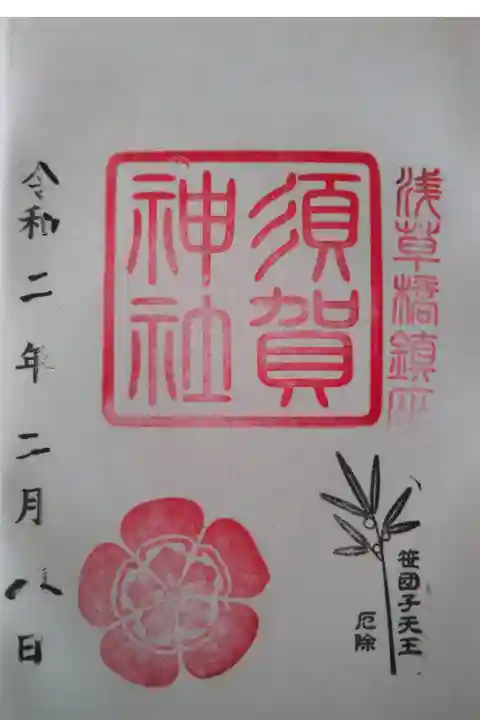 浅草橋鎮座
須賀
神社
笹団子天王
厄除
令和二年二月八日